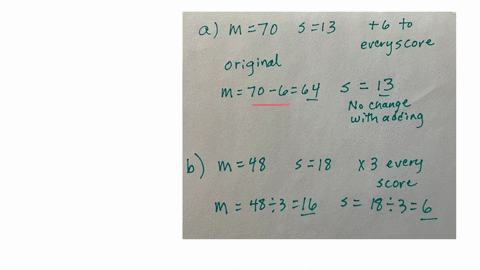 a) m = 70 s = 13 +6 to
every score
original
m = 70 - 6 = 64 s = 13
No change
with adding
b) m = 48 s = 18 x 3 every
score
m = 48 ÷ 3 = 16 s = 18 ÷ 3 = 6